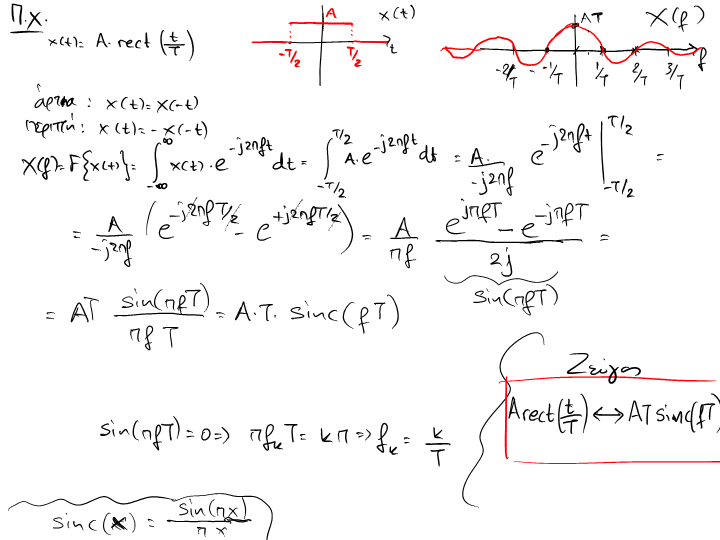 Π.χ.
x(t) = A·rect(t/T)
A
x(t)
-T/2
T/2
t
AT
X(f)
-2/T
-1/T
1/T
2/T
3/T
f
άρτια : x(t) = x(-t)
περιττή : x(t) = -x(-t)
X(f) = F{x(t)} = ∫_{-∞}^{∞} x(t)·e^{-j2πft} dt = ∫_{-T/2}^{T/2} A·e^{-j2πft} dt = A·/(-j2πf) e^{-j2πft} |_{-T/2}^{T/2} =
= A/(-j2πf) (e^{-j2πfT/2} - e^{+j2πfT/2}) = A/(πf) (e^{jπfT} - e^{-jπfT})/(2j) =
sin(πfT)
= AT sin(πfT)/(πfT) = A·T· sinc(fT)
Ζεύγος
A rect(t/T) ↔ AT sinc(fT)
sin(πfT) = 0 => πf_k T = kπ => f_k = k/T
sinc(x) = sin(πx)/(πx)